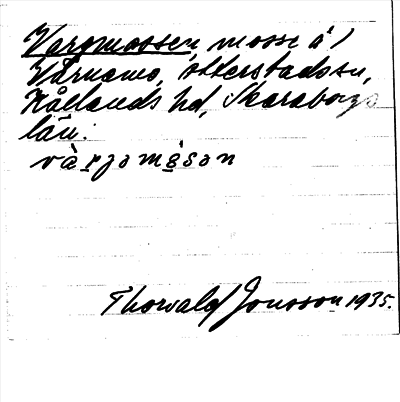 Vargmossen, mosse å 1
Värnamo, Otterstads sn,
Kållands hd, Skaraborgs
län.
Thorvald Jonsson 1935.